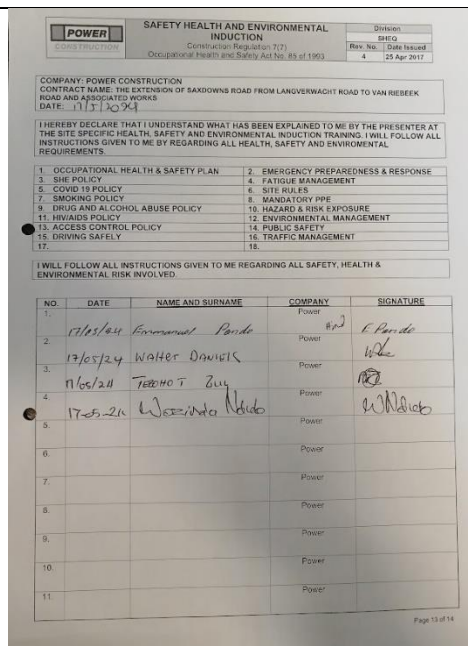 POWER
CONSTRUCTION
SAFETY HEALTH AND ENVIRONMENTAL
INDUCTION
Construction Regulation 7(7)
Occupational Health and Safety Act No. 85 of 1993
Division
SHEQ
Rev. No. Date Issued
4 25 Apr 2017
COMPANY: POWER CONSTRUCTION
CONTRACT NAME: THE EXTENSION OF SAXDOWNS ROAD FROM LANGVERWACHT ROAD TO VAN RIEBEEK
ROAD AND ASSOCIATED WORKS
DATE: 17/5/2024
I HEREBY DECLARE THAT I UNDERSTAND WHAT HAS BEEN EXPLAINED TO ME BY THE PRESENTER AT
THE SITE SPECIFIC HEALTH, SAFETY AND ENVIRONMENTAL INDUCTION TRAINING. I WILL FOLLOW ALL
INSTRUCTIONS GIVEN TO ME BY REGARDING ALL HEALTH, SAFETY AND ENVIROMENTAL
REQUIREMENTS.
1. OCCUPATIONAL HEALTH & SAFETY PLAN 2. EMERGENCY PREPAREDNESS & RESPONSE
3. SHE POLICY 4. FATIGUE MANAGEMENT
5. COVID 19 POLICY 6. SITE RULES
7. SMOKING POLICY 8. MANDATORY PPE
9. DRUG AND ALCOHOL ABUSE POLICY 10. HAZARD & RISK EXPOSURE
11. HIV/AIDS POLICY 12. ENVIRONMENTAL MANAGEMENT
13. ACCESS CONTROL POLICY 14. PUBLIC SAFETY
15. DRIVING SAFELY 16. TRAFFIC MANAGEMENT
17. 18.
I WILL FOLLOW ALL INSTRUCTIONS GIVEN TO ME REGARDING ALL SAFETY, HEALTH &
ENVIRONMENTAL RISK INVOLVED.
NO. DATE NAME AND SURNAME COMPANY SIGNATURE
1. 17/05/24 Emmanuel Pando Power E Pando
2. 17/05/24 Walter Daniels Power
3. 17/05/24 Power
4. 17-05-24 Power
5. Power
6. Power
7. Power
8. Power
9. Power
10. Power
11. Power
Page 13 of 14